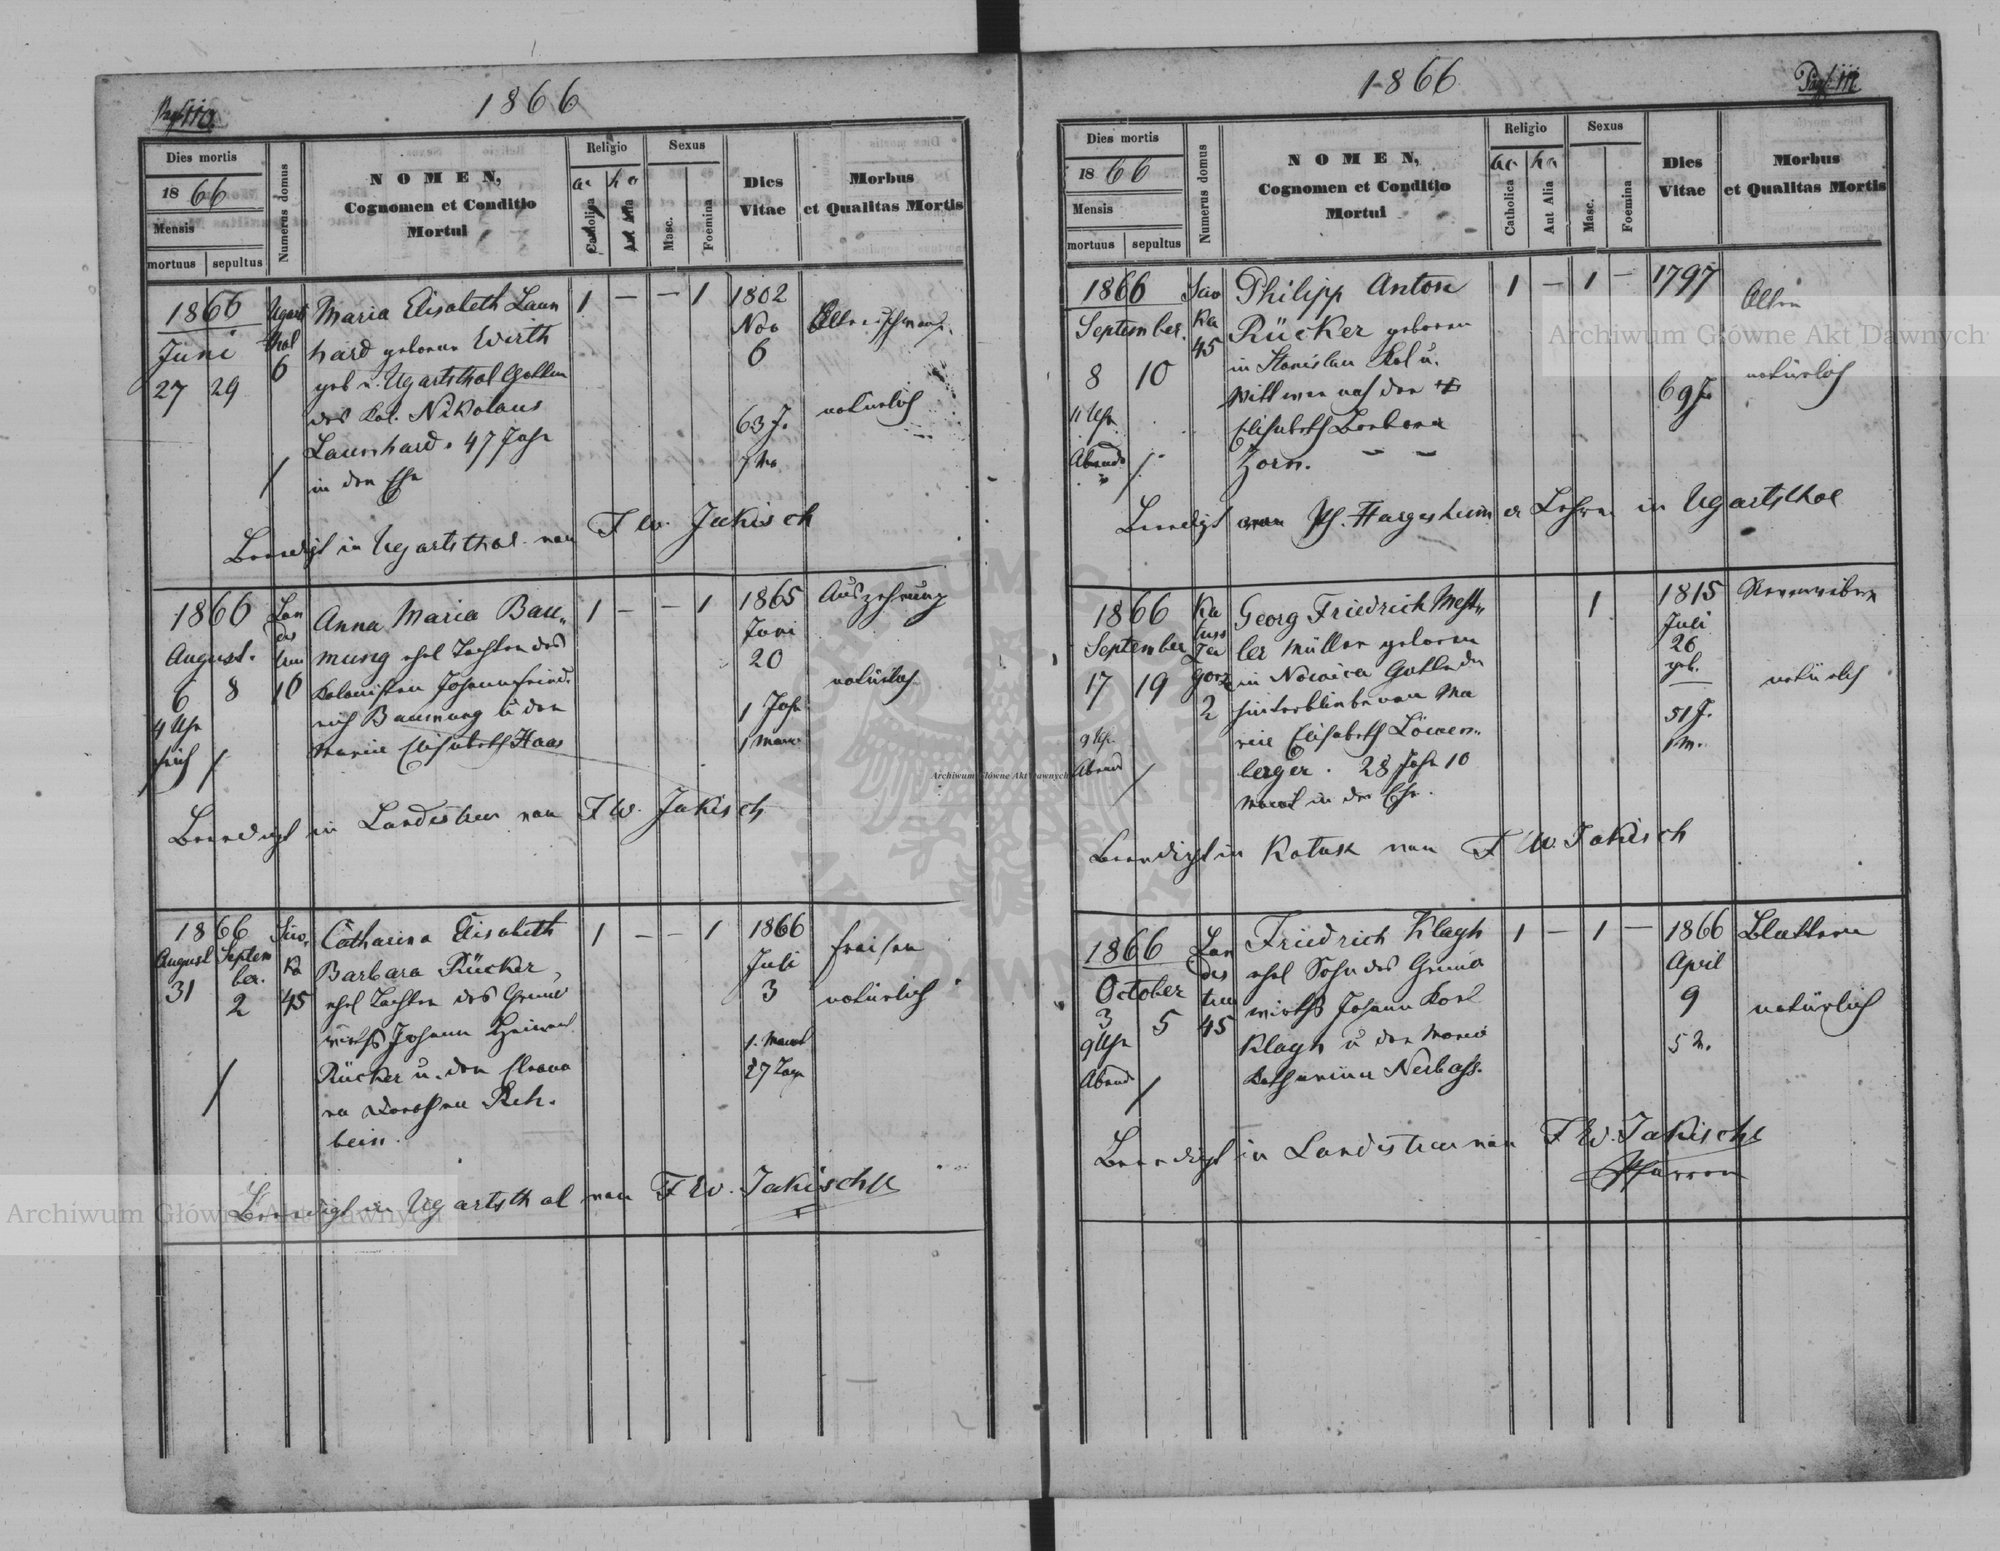 Pag. 110.
1866
Dies mortis
1866
Mensis
mortuus sepultus
Numerus domus
NOMEN,
Cognomen et Conditio
Mortui
Religio
ac ha
Catholica
Aut Alia
Sexus
Masc.
Foemina
Dies
Vitae
Morbus
et Qualitas Mortis
1866
Juni
27 29
Ugarts
thal
6
Maria Elisabeth Laun
hard geborne Wirth
geb. in Ugartsthal Gattin
des Kol. Nikolaus
Launhard. 47 Jahr
in der Ehe
1 — — 1
1802
Nov
6
63 J.
7 Mo
natürlich
Beerdigt in Ugartsthal von F W. Jakisch
1866
August.
6 8
4 Uhr
früh
Lan
des
treu
10
Anna Maria Bau„
mung ehel Tochter des
Kolonisten Johann Fried.
rich Baumung u der
Marie Elisabeth Haas
1 — — 1
1865
Juni
20
1 Jahr
1 Monat
Auszehrung
natürlich
Beerdigt in Landestreu von F W. Jakisch
1866
August Septem
ber.
31 2
Siw.
Ka
45
Catharina Elisabeth
Barbara Rücker,
ehel Tochter des Grund
wirths Johann Heinrich
Rücker u. der Eleono
ra Dorothea Reh.
bein.
1 — — 1
1866
Juli
3
1. Monat
27 Tage
Fraisen
natürlich
Beerdigt in Ugartsthal von F W. Jakisch
Pag. 111
1866
Dies mortis
1866
Mensis
mortuus sepultus
Numerus domus
NOMEN,
Cognomen et Conditio
Mortui
Religio
ac ha
Catholica
Aut Alia
Sexus
Masc.
Foemina
Dies
Vitae
Morbus
et Qualitas Mortis
1866
September.
8 10
11 Uhr
Abends
Siw
Ka
45
Philipp Anton
Rücker geboren
in Stanislau Kol u.
Wittwer nach der
Elisabeth Barbara
Zorn.
1 — 1 —
1797
69 J.
natürlich
Beerdigt von Ph. Hargesheimer Lehrer in Ugartsthal
1866
September
17 19
9 Uhr
Abend
Ka
lusz
Za
gorz
2
Georg Friedrich Mest„
ler Müller geboren
in Nowica Gatte der
hinterbliebenen Ma
rie Elisabeth Löwen„
berger. 28 Jahr 10
Monat in der Ehe.
1
1815
Juli
26
geb.
51 J.
1 M.
natürlich
Beerdigt in Kalusz von F W. Jakisch
1866
October
3 5
9 Uhr
Abend
Lan
des
treu
45
Friedrich Klagh
ehel Sohn des Grund
wirths Johann Karl
Klagh u der Maria
Katharina Nerbass.
1 — 1 —
1866
April
9
5 M.
Blattern
natürlich
Beerdigt in Landestreu von F W. Jakisch
Pfarrer
Archiwum Główne Akt Dawnych
Archiwum Główne Akt Dawnych
Archiwum Główne Akt Dawnych